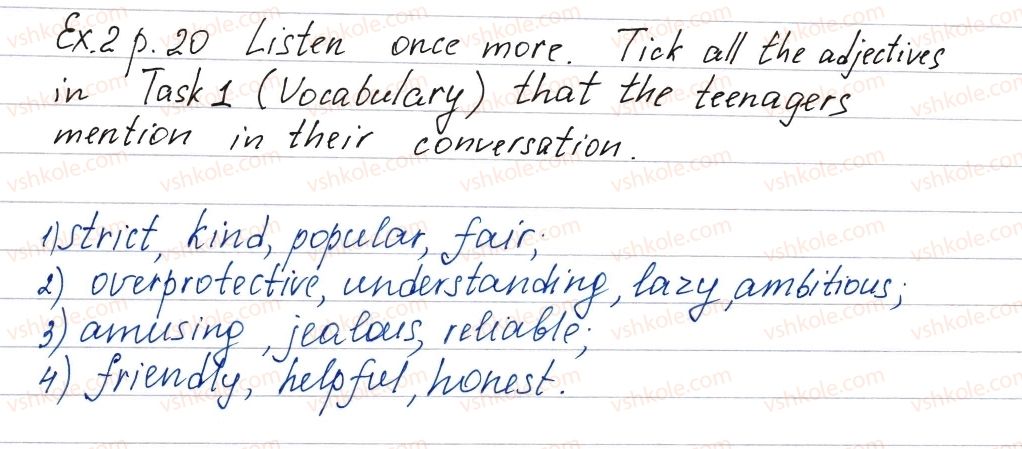 Ex.2 p.20 Listen once more. Tick all the adjectives
in Task 1 (Vocabulary) that the teenagers
mention in their conversation.
1) strict, kind, popular, fair;
2) overprotective, understanding, lazy, ambitious;
3) amusing, jealous, reliable;
4) friendly, helpful, honest.